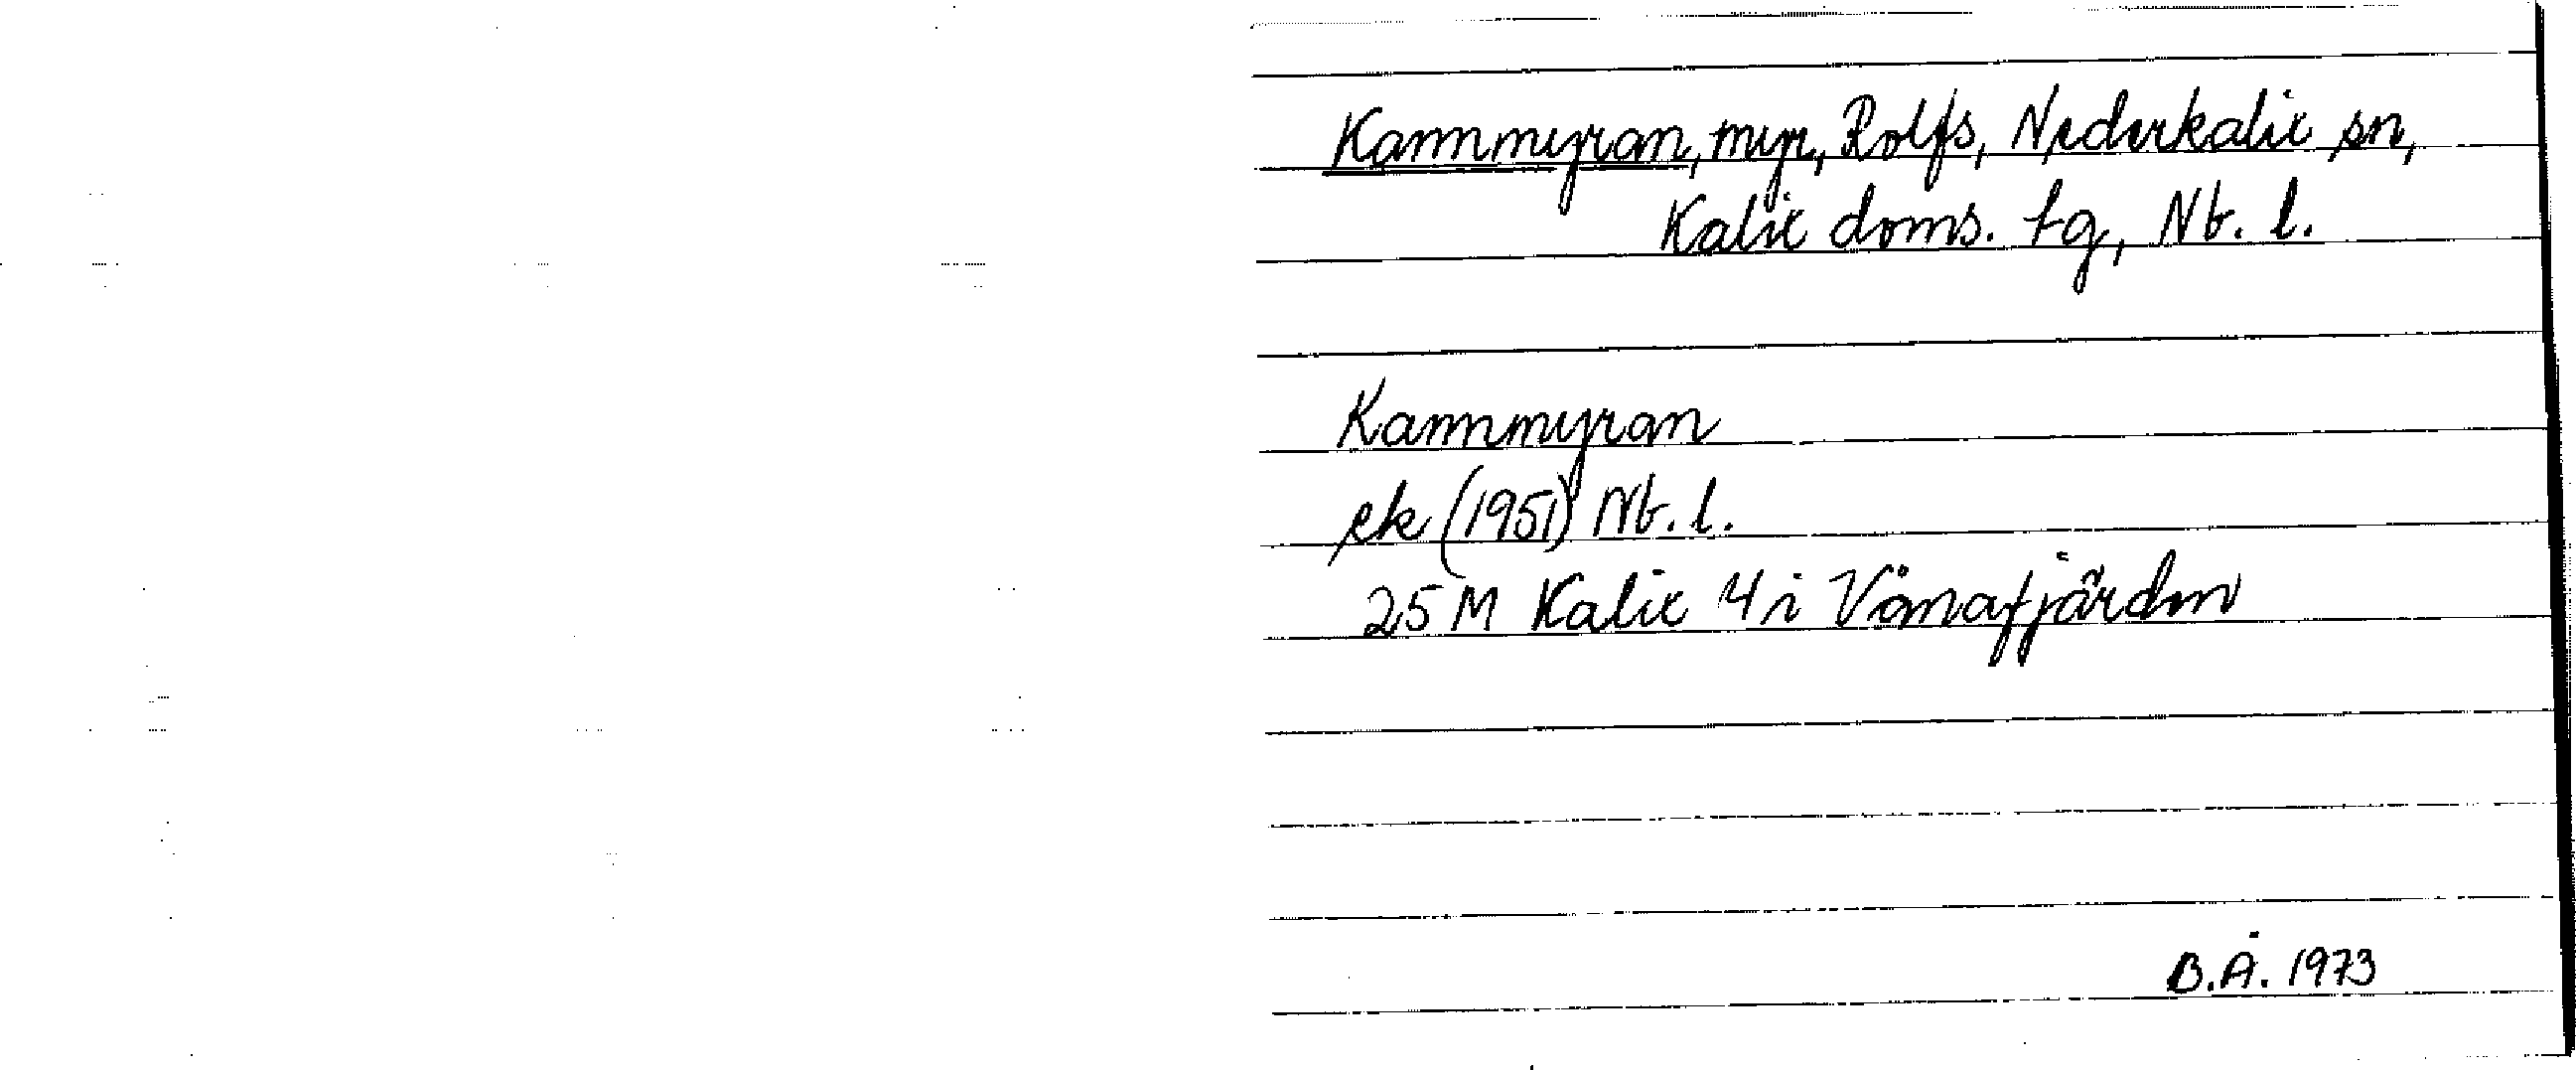 Kammmyran, myr, Rolfs, Nederkalix sn,
Kalix doms. tg, Nb. l.
Kammmyran
ek (1951) Nb. l.
25 M Kalix 4 i Vånafjärden
B.Å. 1973